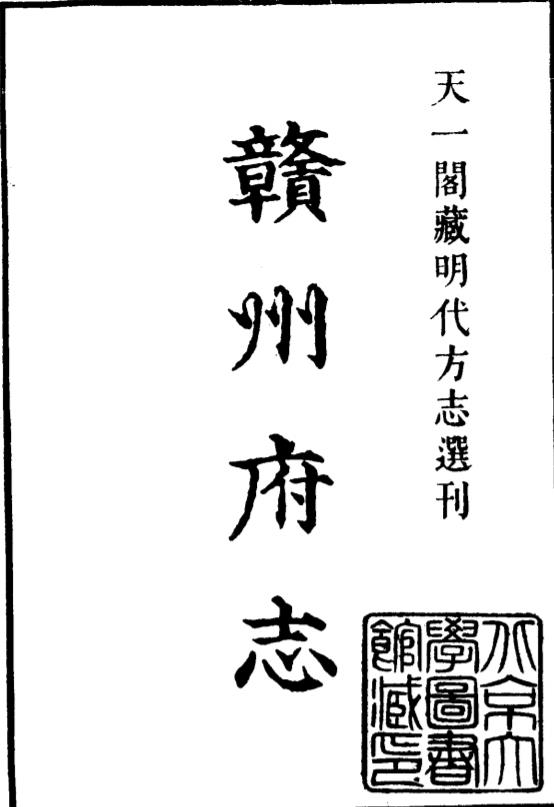 天一閣藏明代方志選刊
贛州府志
北京大
學圖書
館藏印